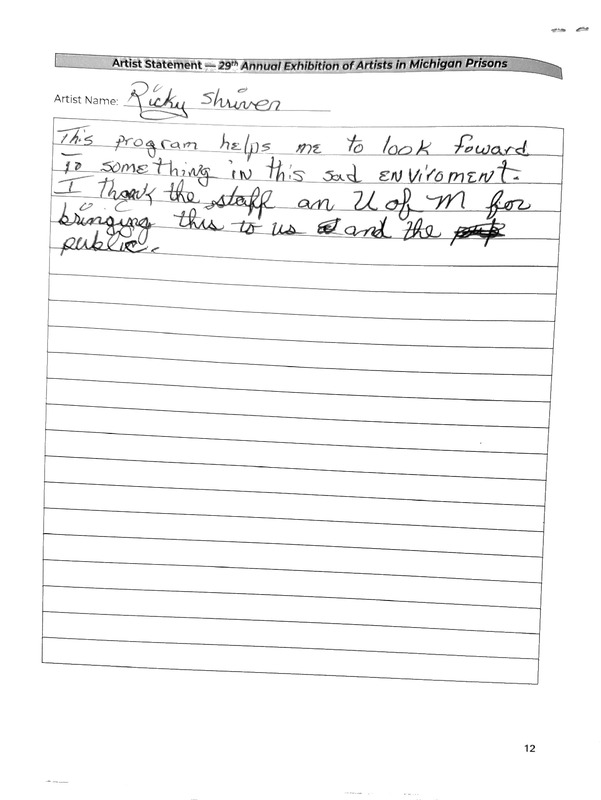 Artist Statement — 29th Annual Exhibition of Artists in Michigan Prisons
Artist Name: Ricky Shriver
This program helps me to look foward
to something in this sad enviroment.
I thank the staff an U of M for
bringing this to us and the
public.
12